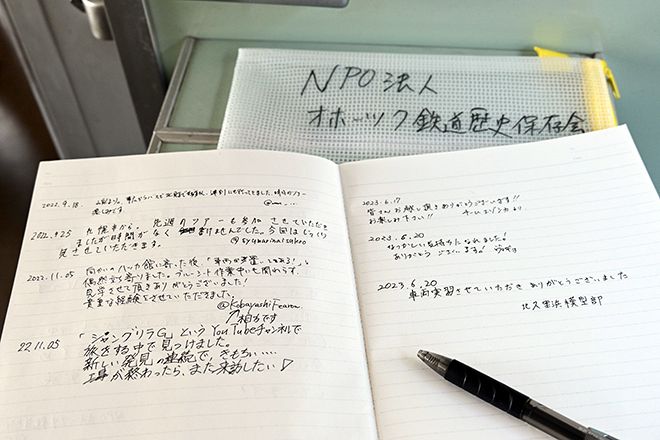 NPO法人
オホーツク鉄道歴史保存会
2022.9.18.
2022.9.25 札幌市から。先週のツアーも参加させていただき
ましたが時間がなく
見させていただきます。
2022.11.05 向かいのハッカ館に寄った後、
偶然立ち寄りました。ブルーシート作業中にも関わらず、
見学させて頂きありがとうございました!
貴重な経験をさせていただきました。
@KobayashiFearon
↗相方です
22.11.05 「ジャングリラG」というYouTubeチャンネルで
旅をする中で見つけました。
新しい発見の連続で、きもちい....
工事が終わったら、また来訪したい♡
2023.6.17
皆さんお越し頂きありがとうございます!!
お楽しみ下さい!!
2023.6.20
なつかしい気持ちになれました!
ありがとうございます。
2023.6.20
車両実習させていただきありがとうございました
模型部